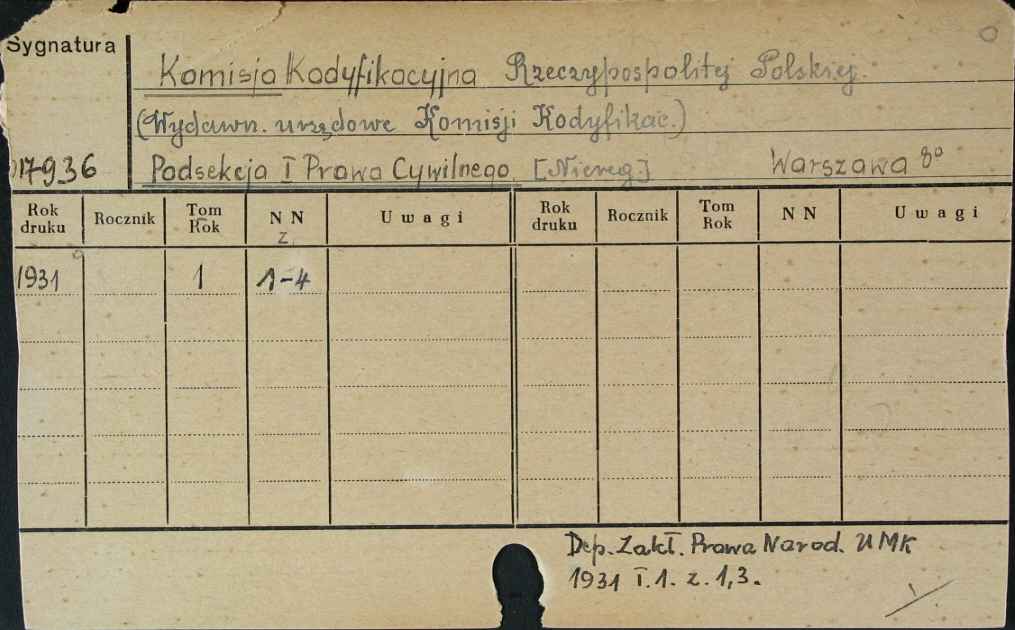 Sygnatura
Komisja Kodyfikacyjna Rzeczypospolitej Polskiej.
(Wydawn. urzędowe Komisji Kodyfikac.)
017936 Podsekcja I Prawa Cywilnego. [Niereg.] Warszawa 8°
Rok druku Rocznik Tom Rok N N z. Uwagi Rok druku Rocznik Tom Rok N N Uwagi
1931 1 1-4
Dep. Zakł. Prawa Narod. UMK
1931 T.1. z.1,3.